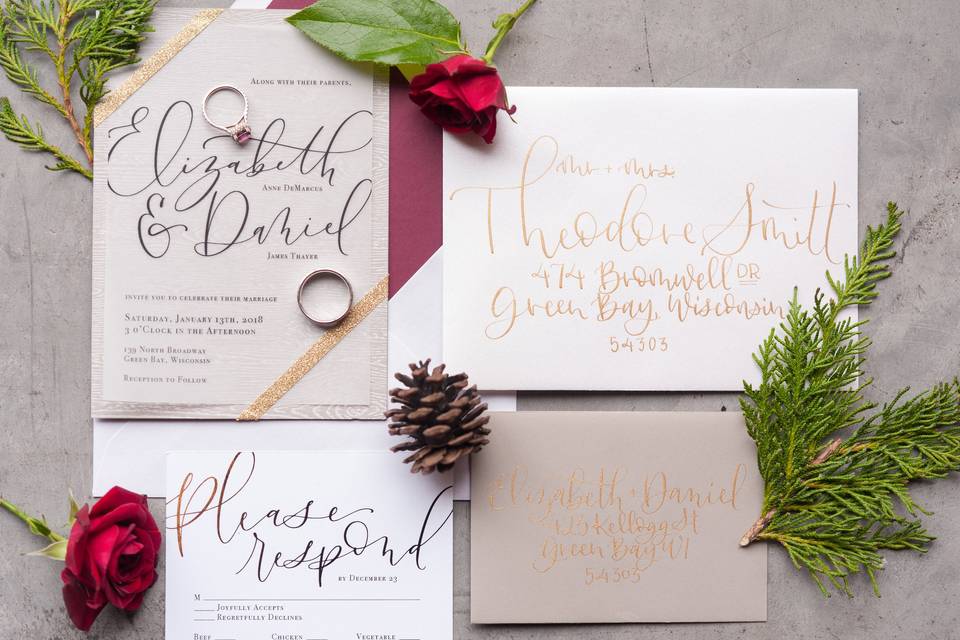 Along with their parents,
Elizabeth
Anne DeMarcus
& Daniel
James Thayer
invite you to celebrate their marriage
Saturday, January 13th, 2018
3 o'Clock in the Afternoon
139 North Broadway
Green Bay, Wisconsin
Reception to Follow
mr + mrs.
Theodore Smitt
474 Bromwell DR
Green Bay, Wisconsin
54303
Please
respond
by December 23
M
Joyfully Accepts
Regretfully Declines
Beef Chicken Vegetable
Elizabeth + Daniel
423 Kellogg St
Green Bay WI
54303